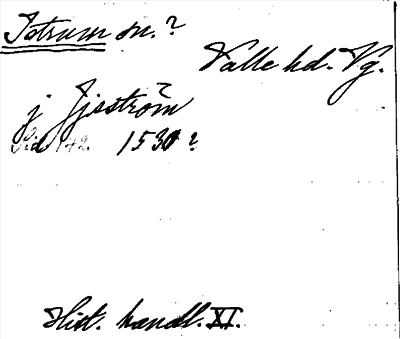 Istrum sn.?
Valle hd. Vg.
j Jjsström
Sid 142. 1530?
Hist. handl. XI.